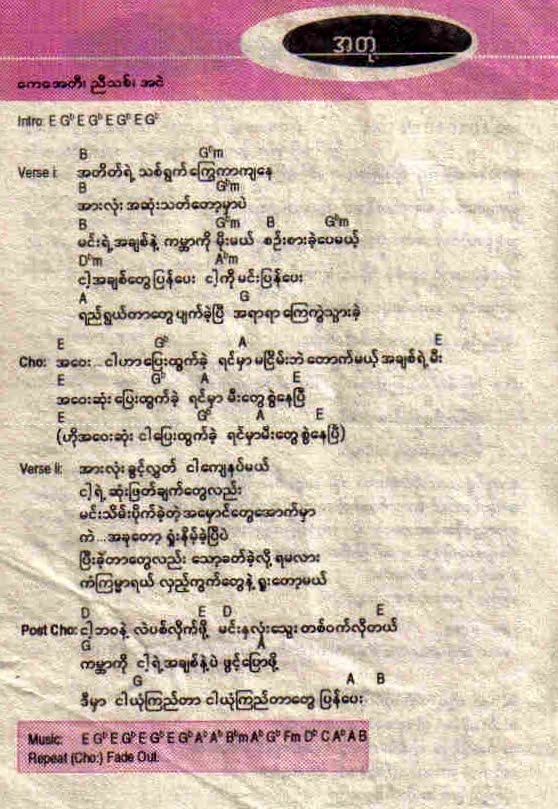 အတု
ကေအေတီ၊ ညီသစ်၊ အငဲ
Intro: E Gᵇ E Gᵇ E Gᵇ E Gᵇ
B Gᵇm
Verse i: အတိတ်ရဲ့ သစ်ရွက်ကြွေကာကျနေ
B Gᵇm
အားလုံး အဆုံးသတ်တော့မှာပဲ
B Gᵇm B Gᵇm
မင်းရဲ့အချစ်နဲ့ ကမ္ဘာကို မိုးမယ် စဉ်းစားခဲ့ပေမယ့်
Dᵇm Aᵇm
ငါ့အချစ်တွေပြန်ပေး ငါ့ကိုမင်းပြန်ပေး
A G
ရည်ရွယ်တာတွေပျက်ခဲ့ပြီ အရာရာကြေကွဲသွားခဲ့
E Gᵇ A E
Cho: အဝေး...ငါဟာပြေးထွက်ခဲ့ ရင်မှာမငြိမ်းဘဲတောက်မယ့်အချစ်ရဲ့မီး
E Gᵇ A E
အဝေးဆုံးပြေးထွက်ခဲ့ ရင်မှာ မီးတွေစွဲနေပြီ
E Gᵇ A E
(ဟိုအဝေးဆုံး ငါပြေးထွက်ခဲ့ ရင်မှာမီးတွေစွဲနေပြီ)
Verse ii: အားလုံးခွင့်လွှတ် ငါကျေနပ်မယ်
ငါ့ရဲ့ဆုံးဖြတ်ချက်တွေလည်း
မင်းသိမ်းပိုက်ခဲ့တဲ့အမှောင်တွေအောက်မှာ
ကဲ...အခုတော့ ရှုံးနိမ့်ခဲ့ပြီပဲ
ပြီးခဲ့တာတွေလည်း သော့ခတ်ခဲ့လို့ ရမလား
ကံကြမ္မာရယ် လှည့်ကွက်တွေနဲ့ ရူးတော့မယ်
D E D E
Post Cho: ငါ့ဘဝနဲ့ လဲပစ်လိုက်ဖို့ မင်းနှလုံးသွေးတစ်ဝက်လိုတယ်
G A
ကမ္ဘာကို ငါ့ရဲ့အချစ်နဲ့ပဲ ဖွင့်ပြောဖို့
G A B
ဒီမှာ ငါယုံကြည်တာ ငါယုံကြည်တာတွေ ပြန်ပေး
Music: E Gᵇ E Gᵇ E Gᵇ E Gᵇ Aᵇ Aᵇ Bᵇm Aᵇ Gᵇ Fm Dᵇ C Aᵇ A B
Repeat (Cho:) Fade Out.